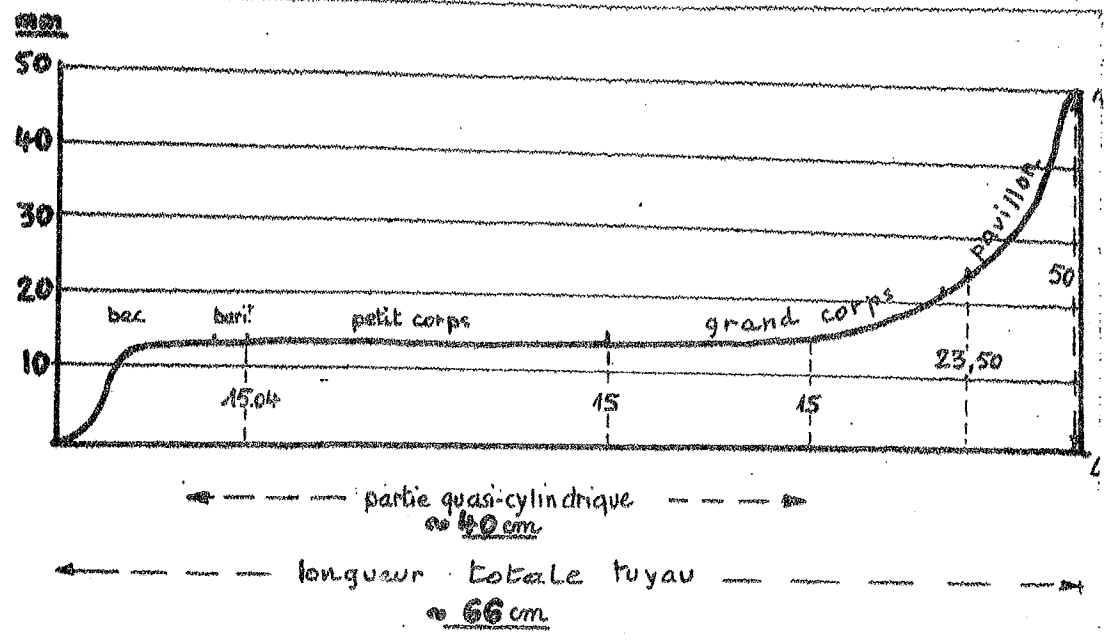 mm
50
40
30
20
10
bec
petit corps
grand corps
pavillon
50
23,50
15.04
15
15
partie quasi-cylindrique
~ 40 cm
longueur totale tuyau
~ 66 cm